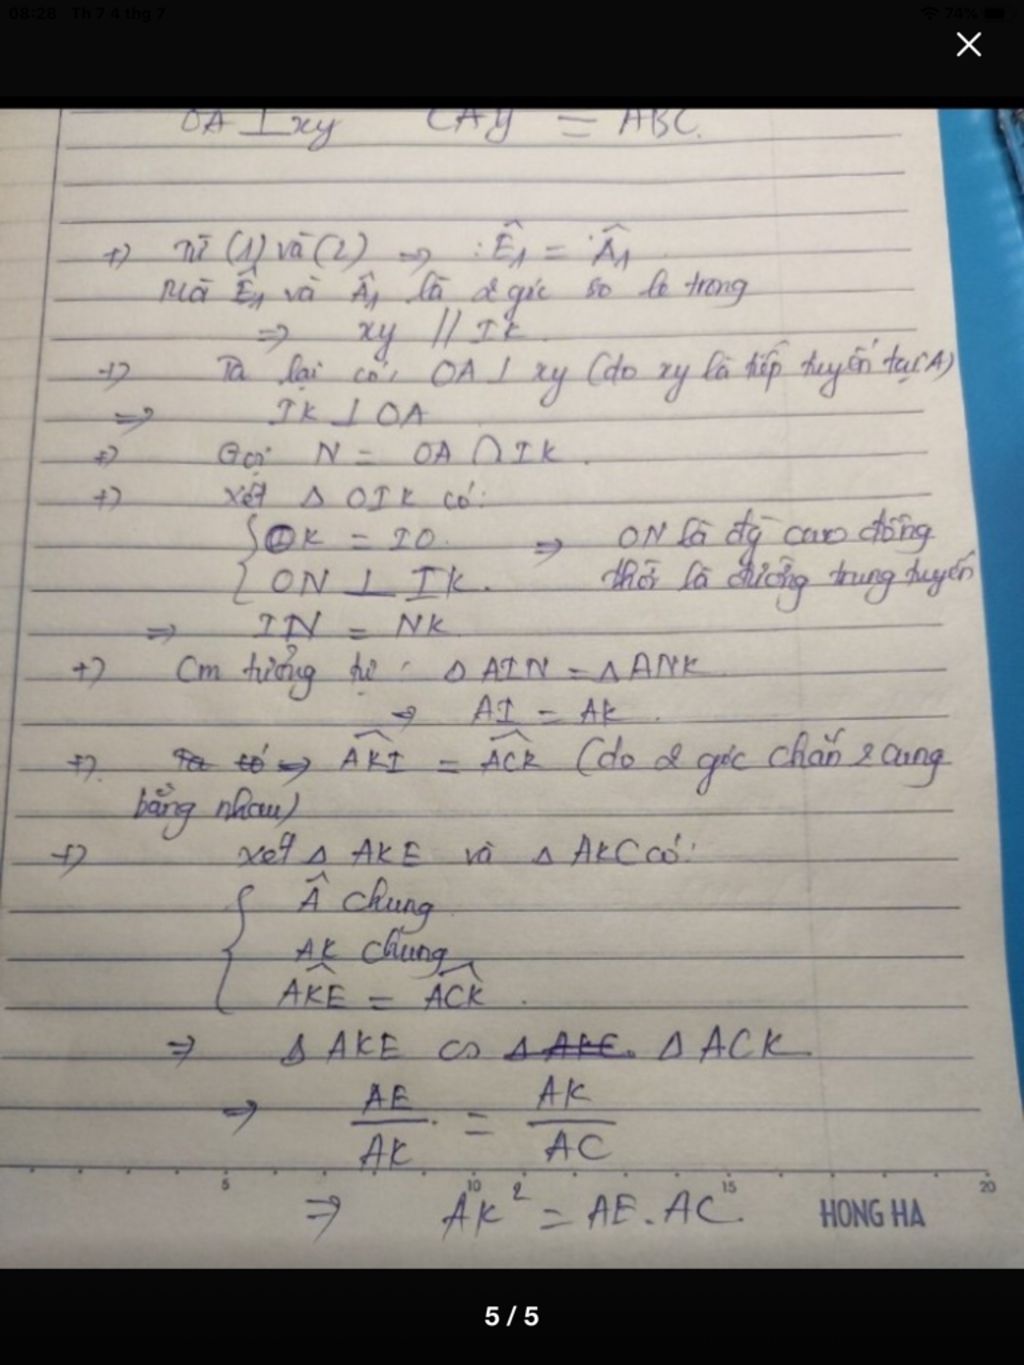 08:28 Th 7 4 thg 7 74%
OA ⊥ xy CAy = ABC.
+) Từ (1) và (2) ⇒ : Ê₁ = Â₁
Mà Ê₁ và Â₁ là 2 góc so le trong
⇒ xy // IK
+) Ta lại có: OA ⊥ xy (do xy là tiếp tuyến tại A)
⇒ IK ⊥ OA
+) Gọi N = OA ∩ IK.
+) Xét Δ OIK có:
{ OK = IO. ⇒ ON là đg cao đồng
{ ON ⊥ IK. thời là đường trung tuyến
⇒ IN = NK
+) Cm tương tự: Δ AIN = Δ ANK
⇒ AI = AK.
+) Ta có ⇒ AKI = ACK (do 2 góc chắn 2 cung
bằng nhau)
+) Xét Δ AKE và Δ AKC có:
 chung
AK chung
AKE = ACK.
⇒ Δ AKE ∽ Δ AKC. Δ ACK
⇒ AE/AK = AK/AC
5 10 15 20
⇒ AK² = AE.AC.
HONG HA
5 / 5